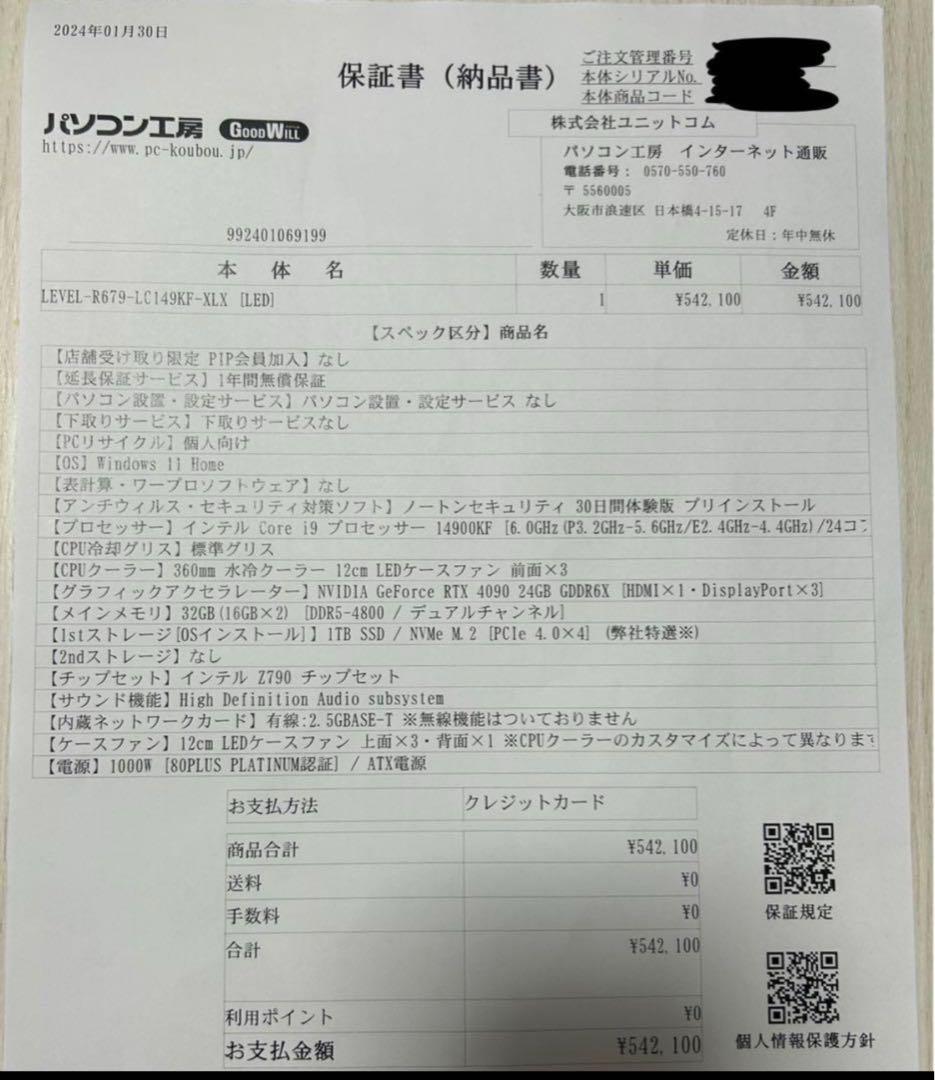 2024年01月30日
保証書（納品書）
ご注文管理番号
本体シリアルNo.
本体商品コード
パソコン工房 GOODWILL
https://www.pc-koubou.jp/
株式会社ユニットコム
パソコン工房　インターネット通販
電話番号： 0570-550-760
〒 5560005
大阪市浪速区 日本橋4-15-17　4F
定休日：年中無休
992401069199
本　体　名 数量 単価 金額
LEVEL-R679-LC149KF-XLX [LED] 1 ¥542,100 ¥542,100
【スペック区分】商品名
【店舗受け取り限定 PIP会員加入】なし
【延長保証サービス】1年間無償保証
【パソコン設置・設定サービス】パソコン設置・設定サービス なし
【下取りサービス】下取りサービスなし
【PCリサイクル】個人向け
【OS】Windows 11 Home
【表計算・ワープロソフトウェア】なし
【アンチウィルス・セキュリティ対策ソフト】ノートンセキュリティ 30日間体験版 プリインストール
【プロセッサー】インテル Core i9 プロセッサー 14900KF [6.0GHz(P3.2GHz-5.6GHz/E2.4GHz-4.4GHz)/24コア
【CPU冷却グリス】標準グリス
【CPUクーラー】360mm 水冷クーラー 12cm LEDケースファン 前面×3
【グラフィックアクセラレーター】NVIDIA GeForce RTX 4090 24GB GDDR6X [HDMI×1・DisplayPort×3]
【メインメモリ】32GB(16GB×2) [DDR5-4800 / デュアルチャンネル]
【1stストレージ[OSインストール]】1TB SSD / NVMe M.2 [PCIe 4.0×4] (弊社特選※)
【2ndストレージ】なし
【チップセット】インテル Z790 チップセット
【サウンド機能】High Definition Audio subsystem
【内蔵ネットワークカード】有線:2.5GBASE-T ※無線機能はついておりません
【ケースファン】12cm LEDケースファン 上面×3・背面×1 ※CPUクーラーのカスタマイズによって異なります
【電源】1000W [80PLUS PLATINUM認証] / ATX電源
お支払方法 クレジットカード
商品合計 ¥542,100
送料 ¥0
手数料 ¥0
合計 ¥542,100
利用ポイント ¥0
お支払金額 ¥542,100
保証規定
個人情報保護方針